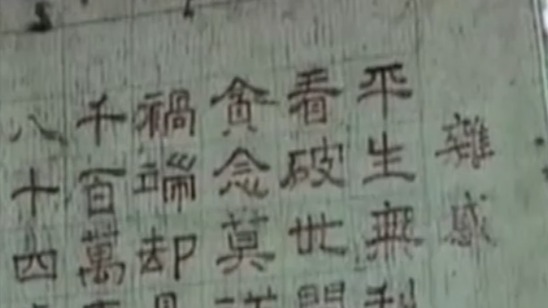 雜感
平生無利
看破世間
貪念莫
禍端却是
千百萬
八十四